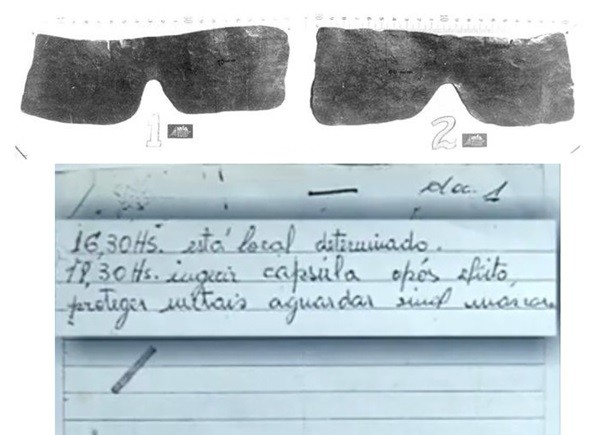 1 2
doc. 1
16,30Hs. está local determinado.
18,30Hs. ingerir capsúla após efeito,
proteger metais aguardar sinal mascara